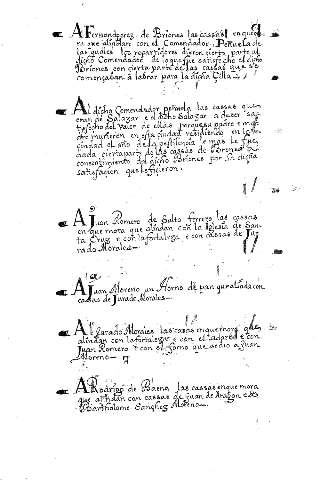 A Fernandperez de Briones las cassas en que
mora que alindan con el Comendador Peñuela de
las quales los repartidores dieron cierta parte al
dicho Comendador de lo que fue satisfecho el dicho
Briones con cierta parte de las cassas que se
començaban a labrar para la dicha Çilla
Al dicho Comendador peñuela las cassas que
eran de Salazar e el dicho Salazar a de ser sa
tisfecho del valor de ellas porque su padre e ma
dre murieron en esta ciudad residiendo en la
ciudad el año de la pestilencia e mas le fue
dada cierta parte de las cassas de Briones de
consentimiento del dicho Briones por la dicha
satisfacion que le ficieron
A Juan Romero de Salto ferrero las cassas
en que mora que alindan con la Iglesia de San
ta Cruz e con la fortaleza e con cassas de Ju
rado Morales
A Juan Moreno un Horno de pan que alinda con
casas de Jurado Morales
Al Jurado Morales las casas en que mora que
alindan con la fortaleza e con el adarve e con
Juan Romero e con el forno que se dio a Juan
Moreno
A Rodrigo de Baena las cassas en que mora
que alindan con cassas de Juan de Aragon e de
Bartholome Sanches Moreno